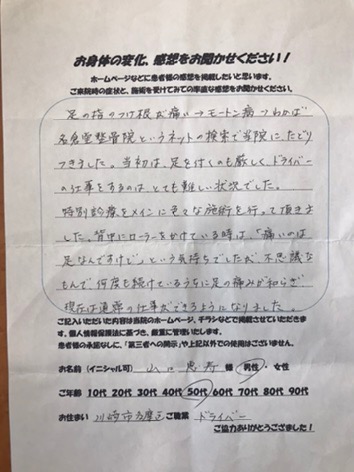 お身体の変化、感想をお聞かせください!
ホームページなどに患者様の感想を掲載したいと思います。
ご来院時の症状と、施術を受けてみての率直な感想をお聞かせください。
足の指のつけ根が痛い→モートン病→わかば
名倉堂整骨院というネットの検索で当院に、たどり
つきました。当初は、足を付くのも厳しく、ドライバー
の仕事をするのは、とても難しい状況でした。
特別診療をメインに色々な施術を行って頂きま
した。背中にローラーをかけている時は、「痛いのは
足なんですけど」という気持ちでしたが、不思議な
もんで何度も続けているうちに足の痛みが和らぎ
現在は通常の仕事ができるようになりました。
ご記入いただいた内容は当院のホームページ、チラシなどで掲載させていただきま
す。個人情報保護法に基づき、厳重に管理いたします。
患者様の承諾なしに、「第三者への開示」や上記以外での使用はございません。
お名前(イニシャル可) 山口 恵寿 様 男性・女性
ご年齢 10代 20代 30代 40代 50代 60代 70代 80代 90代
お住まい 川崎市多摩区 ご職業 ドライバー
ご協力ありがとうございました!